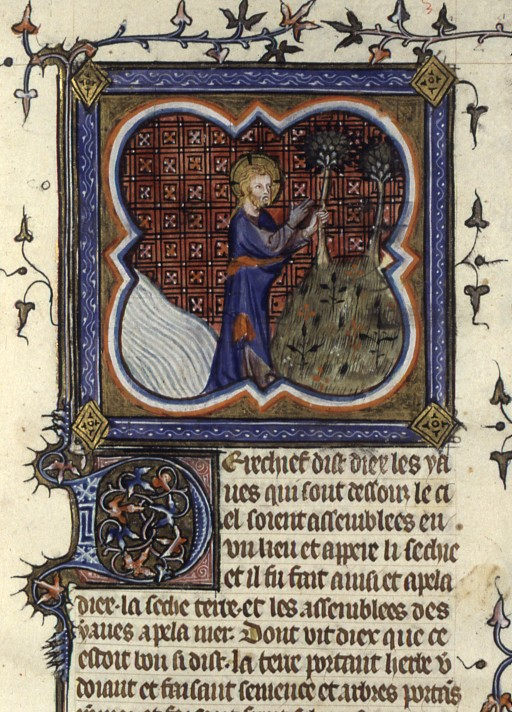 Derechief dist diex les ya
ues qui sont dessouz le ci
el soient assemblees en
vn lieu et appere li seche
et il fu fait ainsi et apela
diex la seche terre et les assemblees des
yaues apela mer. Dont vit diex que ce
estoit bon si dist. la terre portant herbe v̄
doiant et faisant semence et arbres portās